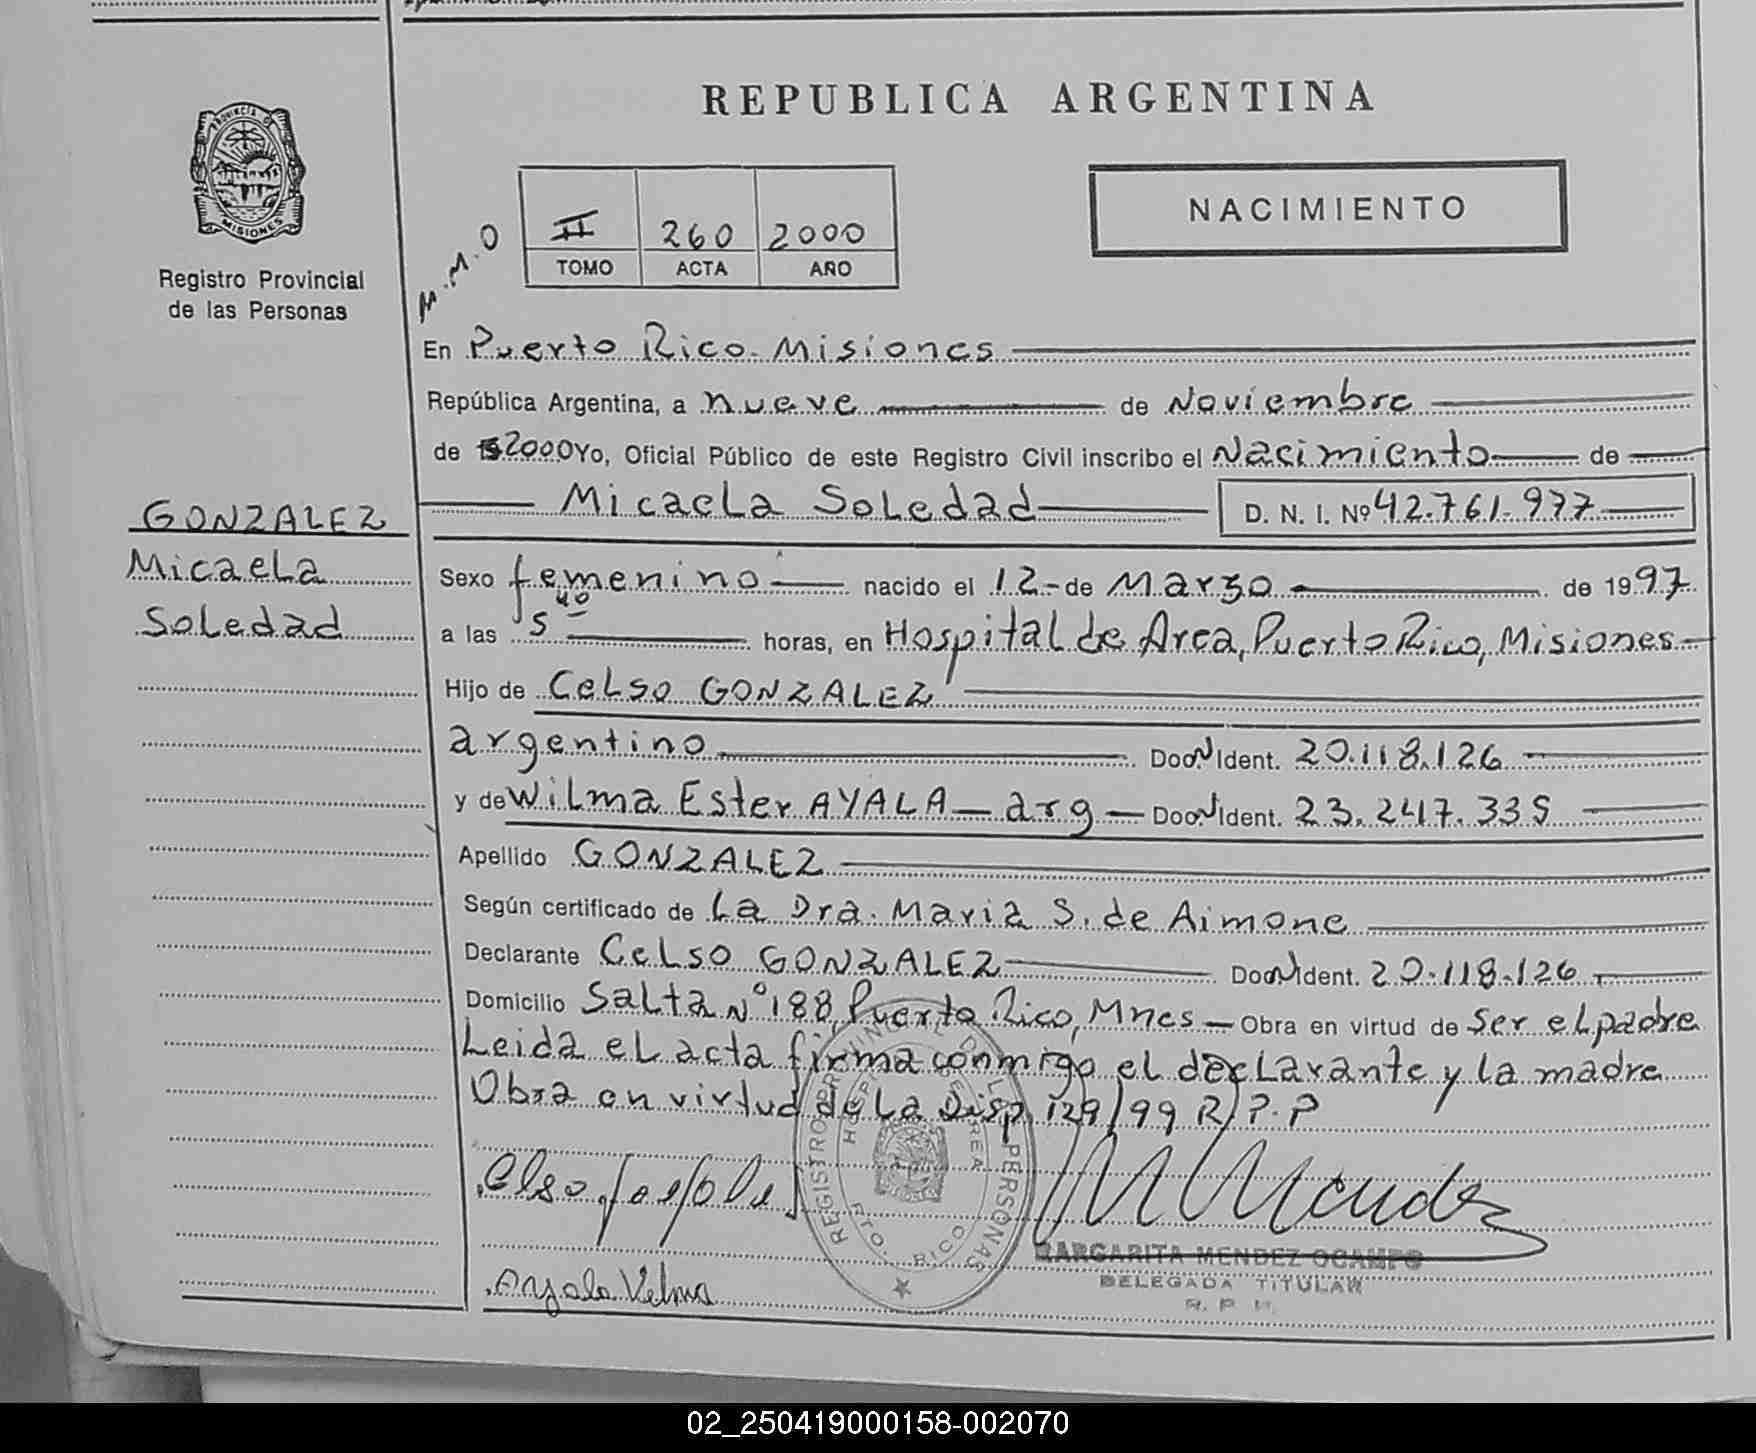 REPUBLICA ARGENTINA
PROVINCIA DE
MISIONES
Registro Provincial
de las Personas
M.M.O
II 260 2000
TOMO ACTA AÑO
NACIMIENTO
En Puerto Rico. Misiones
República Argentina, a nueve de Noviembre
de 2000 Yo, Oficial Público de este Registro Civil inscribo el Nacimiento de
Micaela Soledad D. N. I. Nº 42.761.977
GONZALEZ
Micaela
Soledad
Sexo femenino nacido el 12- de Marzo de 1997
a las 5 40 horas, en Hospital de Area, Puerto Rico, Misiones
Hijo de Celso GONZALEZ
argentino Doc. N Ident. 20.118.126
y de Wilma Ester AYALA - arg - Doc. N Ident. 23.247.335
Apellido GONZALEZ
Según certificado de La Dra. Maria S. de Aimone
Declarante Celso GONZALEZ Doc. N Ident. 20.118.126
Domicilio Salta Nº 188, Puerto Rico, Mnes - Obra en virtud de Ser el padre
Leida el acta firma conmigo el declarante y la madre
Obra en virtud de La Disp 129/99 R.P.P
REGISTRO PROVINCIAL DE LAS PERSONAS
HOSPITAL DE AREA
PTO. RICO
MARGARITA MENDEZ OCAMPO
DELEGADA TITULAR
R. P. P.
02_250419000158-002070